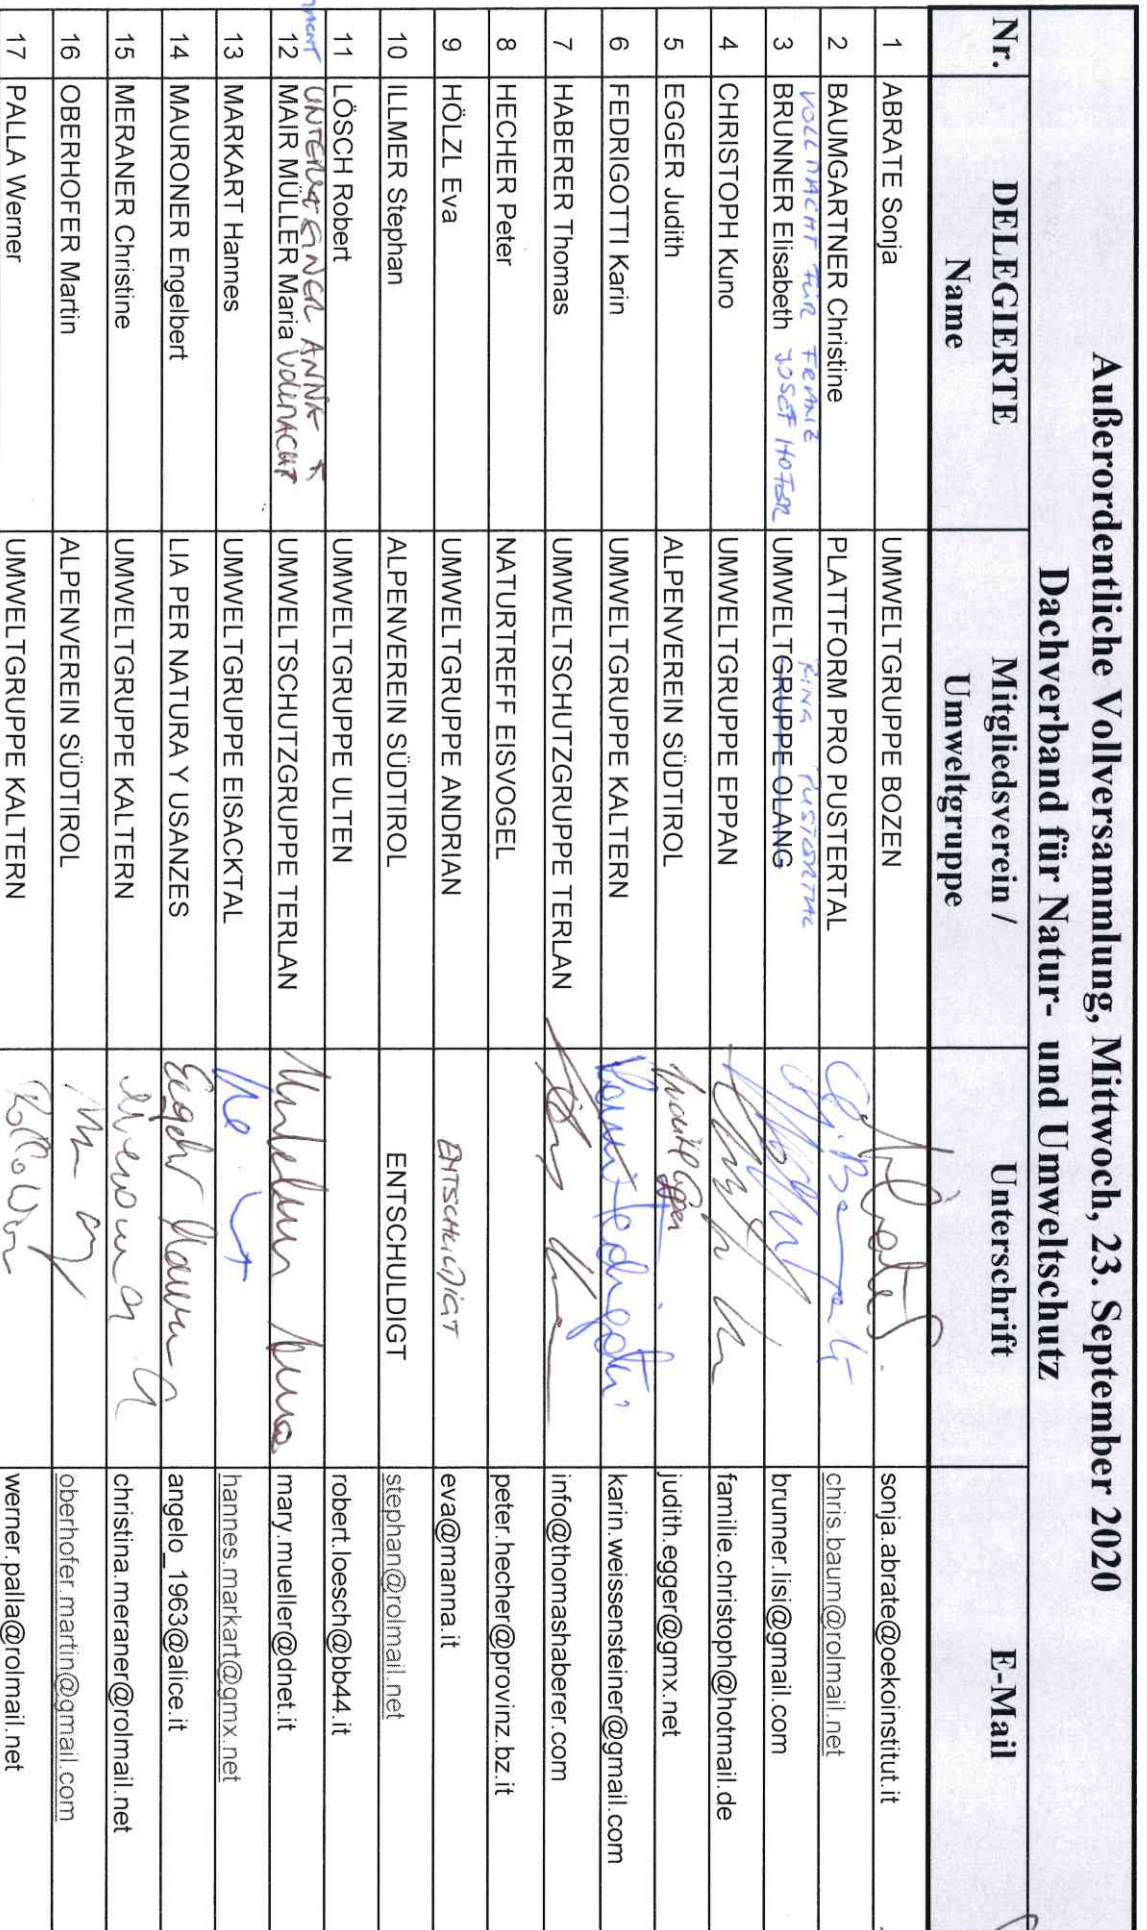 Außerordentliche Vollversammlung, Mittwoch, 23. September 2020
Dachverband für Natur- und Umweltschutz
Nr. DELEGIERTE Name Mitgliedsverein / Umweltgruppe Unterschrift E-Mail
1 ABRATE Sonja UMWELTGRUPPE BOZEN sonja.abrate@oekoinstitut.it
2 BAUMGARTNER Christine PLATTFORM PRO PUSTERTAL chris.baum@rolmail.net
VOLLMACHT FÜR FRANZ JOSEF HOFER RING PUSTERTAL
3 BRUNNER Elisabeth UMWELTGRUPPE OLANG brunner.lisi@gmail.com
4 CHRISTOPH Kuno UMWELTGRUPPE EPPAN familie.christoph@hotmail.de
5 EGGER Judith ALPENVEREIN SÜDTIROL Judith Egger judith.egger@gmx.net
6 FEDRIGOTTI Karin UMWELTGRUPPE KALTERN Karin Fedrigotti karin.weissensteiner@gmail.com
7 HABERER Thomas UMWELTSCHUTZGRUPPE TERLAN info@thomashaberer.com
8 HECHER Peter NATURTREFF EISVOGEL peter.hecher@provinz.bz.it
9 HÖLZL Eva UMWELTGRUPPE ANDRIAN ENTSCHULDIGT eva@manna.it
10 ILLMER Stephan ALPENVEREIN SÜDTIROL ENTSCHULDIGT stephan@rolmail.net
11 LÖSCH Robert UMWELTGRUPPE ULTEN robert.loesch@bb44.it
ANNA
12 MAIR MÜLLER Maria VOLLMACHT UMWELTSCHUTZGRUPPE TERLAN mary.mueller@dnet.it
13 MARKART Hannes UMWELTGRUPPE EISACKTAL hannes.markart@gmx.net
14 MAURONER Engelbert LIA PER NATURA Y USANZES angelo_1963@alice.it
15 MERANER Christine UMWELTGRUPPE KALTERN christina.meraner@rolmail.net
16 OBERHOFER Martin ALPENVEREIN SÜDTIROL oberhofer.martin@gmail.com
17 PALLA Werner UMWELTGRUPPE KALTERN werner.palla@rolmail.net